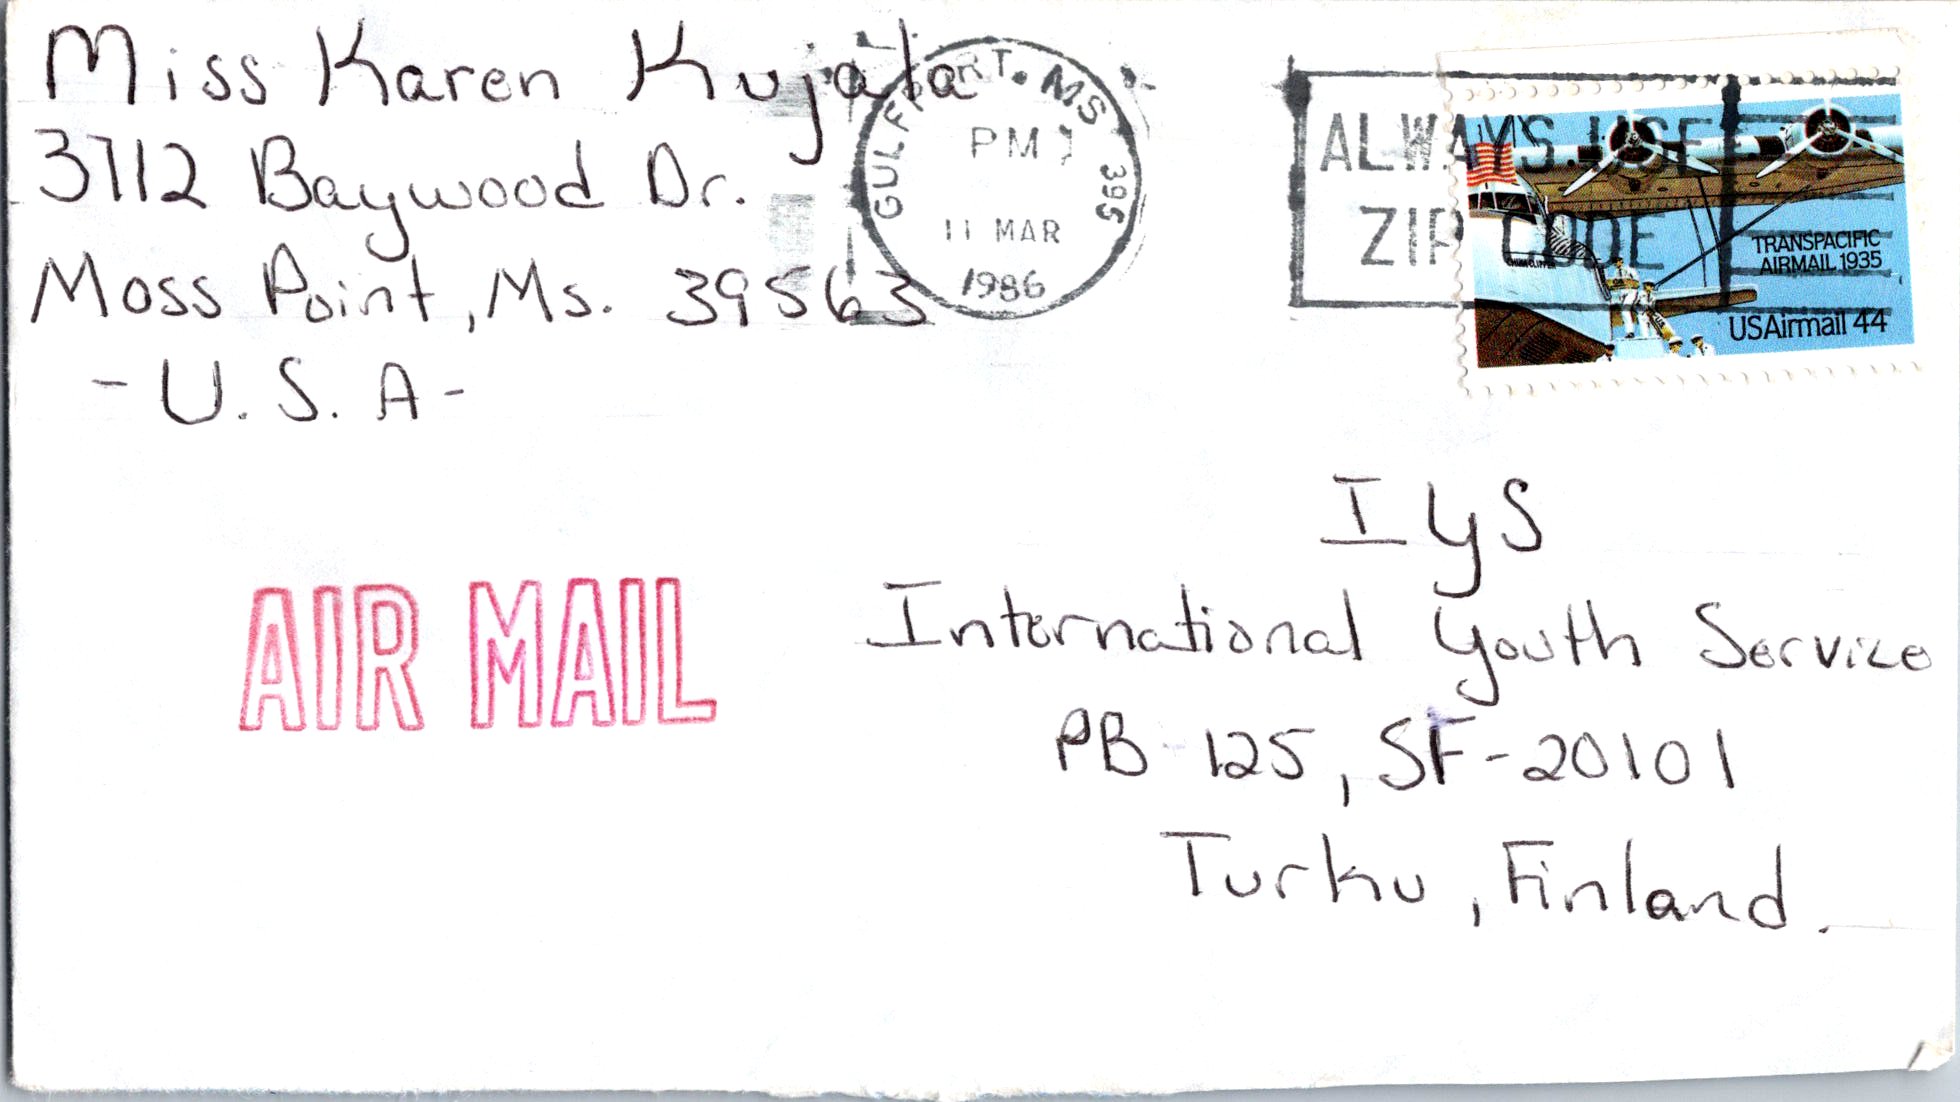 Miss Karen Kujala
3712 Baywood Dr.
Moss Point, Ms. 39563
- U. S. A -
GULFPORT, MS 395
PM
11 MAR
1986
ALWAYS USE
ZIP CODE
CHINA CLIPPER
TRANSPACIFIC
AIRMAIL 1935
USAirmail 44
AIR MAIL
IYS
International Youth Service
PB 125, SF-20101
Turku, Finland.